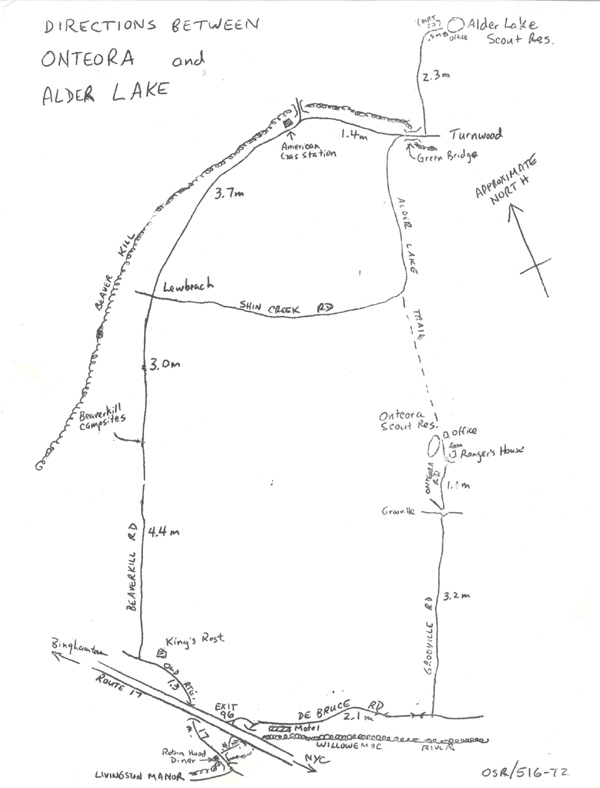 DIRECTIONS BETWEEN
ONTEORA and
ALDER LAKE
Alder Lake
Scout Res.
office
.5m
2.3m
Turnwood
1.4m
American
Gas station
Green Bridge
APPROXIMATE
NORTH
3.7m
ALDER LAKE
BEAVER KILL
Lewbeach
SHIN CREEK RD
TRAIL
3.0m
Beaverkill
Campsites
Onteora
Scout Res.
office
Ranger's House
ONTEORA
RD
Grooville
4.4m
BEAVERKILL RD
3.2m
GROOVILLE RD
King's Rest.
Binghamton
OLD RTE.
1.3
ROUTE 17
EXIT
96
DE BRUCE RD
2.1m
Motel
WILLOWEMOC RIVER
17
Robin Hood
Diner
NYC
LIVINGSTON MANOR
OSR/516-72